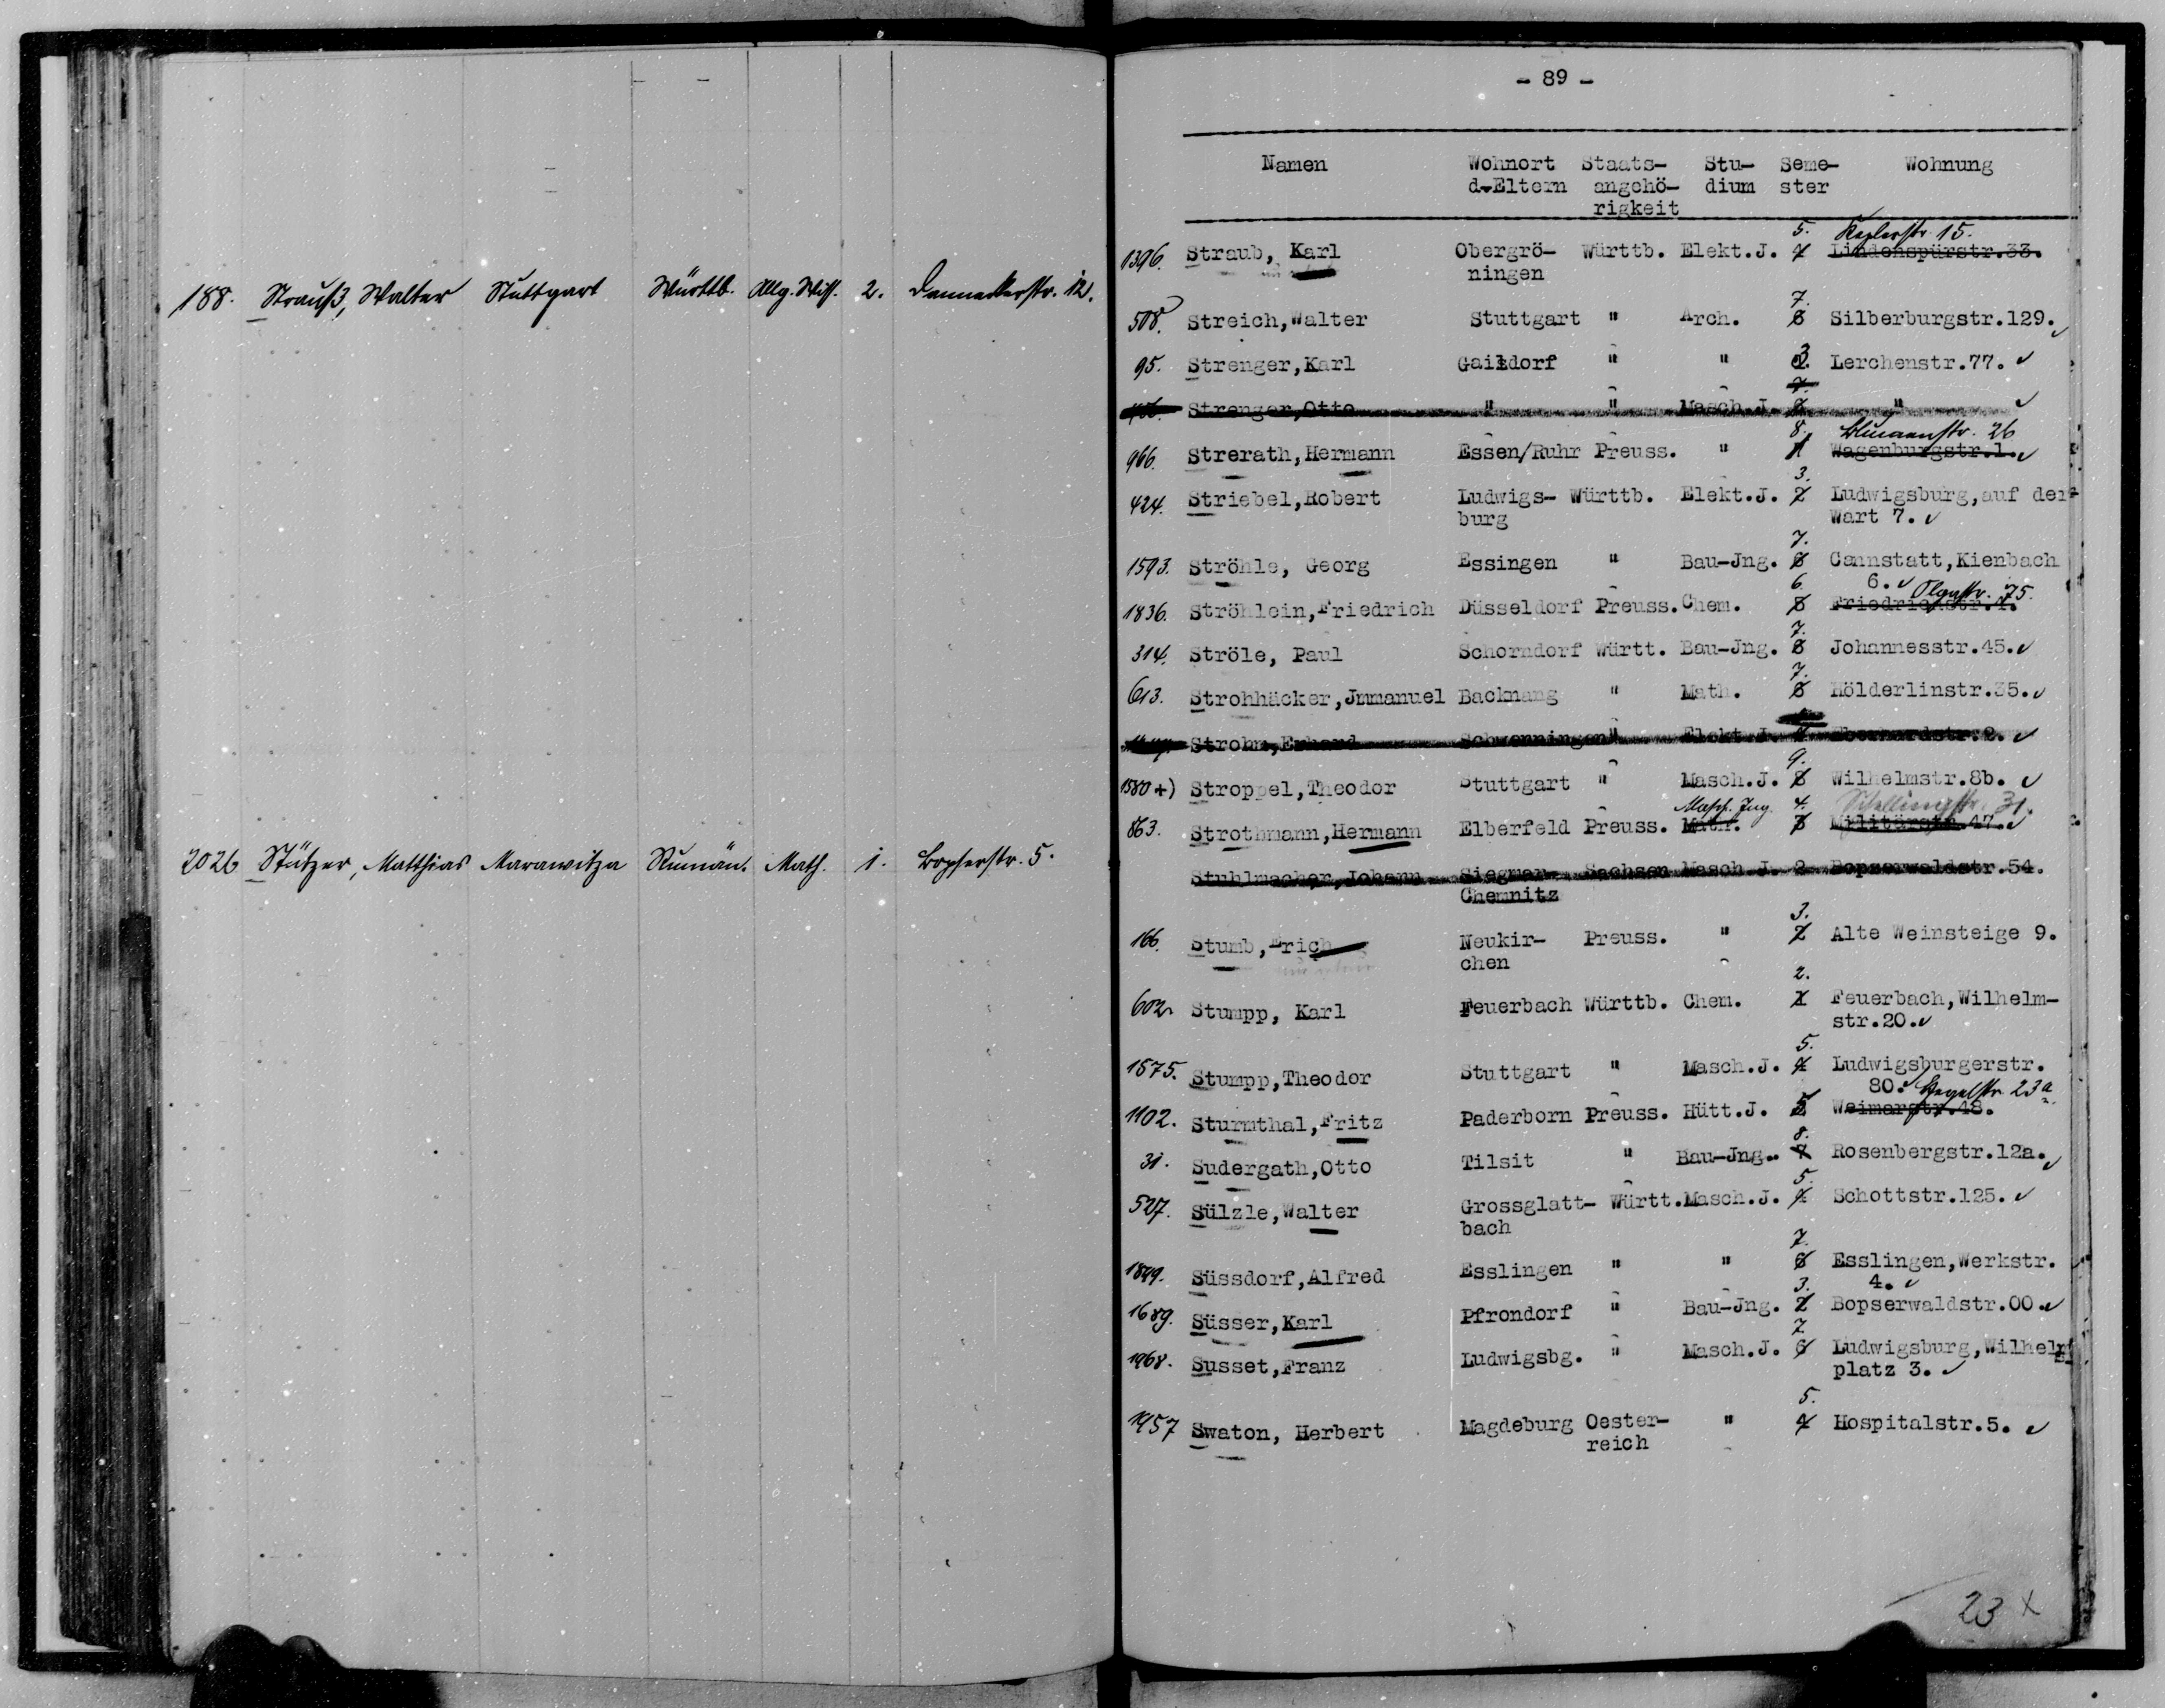 188. Strauß, Walter Stuttgart Württb. Allg. Wiss. 2. Danneckerstr. 12.
2026 Stützer, Matthias Marawitza Rumän. Math. 1. Bopserstr. 5.
- 89 -
Namen Wohnort Staats- Stu- Seme- Wohnung
d.Eltern angehö- dium ster
rigkeit
5. Keplerstr. 15.
1396. Straub, Karl Obergrö- Württb. Elekt.J. 4 Lindenspürstr.33.
ningen
7.
508. Streich,Walter Stuttgart " Arch. 6 Silberburgstr.129.
95. Strenger,Karl Gaildorf " " 3. Lerchenstr.77.
7.
Strenger,Otto " " Masch.J. "
8. Blumenstr. 26
966. Strerath,Hermann Essen/Ruhr Preuss. " Wagenburgstr.1.
3.
424. Striebel,Robert Ludwigs- Württb. Elekt.J. 2 Ludwigsburg,auf der
burg Wart 7.
7.
1593. Ströhle, Georg Essingen " Bau-Jng. 6 Cannstatt,Kienbach
6. 6. Olgastr. 75.
1836. Ströhlein,Friedrich Düsseldorf Preuss. Chem. Friedrichstr.4.
7.
314. Ströle, Paul Schorndorf Württ. Bau-Jng. 6 Johannesstr.45.
7.
613. Strohhäcker,Jmmanuel Backnang " Math. 6 Hölderlinstr.35.
Strohm,Erhard Schwenningen " Elekt.J. Eberhardstr.2.
9.
1580 +) Stroppel,Theodor Stuttgart " Masch.J. 8 Wilhelmstr.8b.
Masch. Ing. 4. Schellingstr. 31.
863. Strothmann,Hermann Elberfeld Preuss. Math. 3 Militärstr.47.
Stuhlmacher,Johann Siegmar- Sachsen Masch.J. 2 Bopserwaldstr.54.
Chemnitz
3.
166. Stumb,Erich Neukir- Preuss. " 2 Alte Weinsteige 9.
chen
2.
602. Stumpp, Karl Feuerbach Württb. Chem. 1 Feuerbach,Wilhelm-
str.20.
5.
1575. Stumpp,Theodor Stuttgart " Masch.J. 4 Ludwigsburgerstr.
80. Hegelstr. 23a
1102. Sturmthal,Fritz Paderborn Preuss. Hütt.J. Weimarstr.48.
8.
31. Sudergath,Otto Tilsit " Bau-Jng. 7 Rosenbergstr.12a.
5.
527. Sülzle,Walter Grossglatt- Württ. Masch.J. 4 Schottstr.125.
bach
7.
1849. Süssdorf,Alfred Esslingen " " 6 Esslingen,Werkstr.
3. 4.
1689. Süsser,Karl Pfrondorf " Bau-Jng. 2 Bopserwaldstr.00.
7.
1968. Susset,Franz Ludwigsbg. " Masch.J. 6 Ludwigsburg,Wilhelm
platz 3.
5.
1957 Swaton, Herbert Magdeburg Oester- " 4 Hospitalstr.5.
reich
23 x